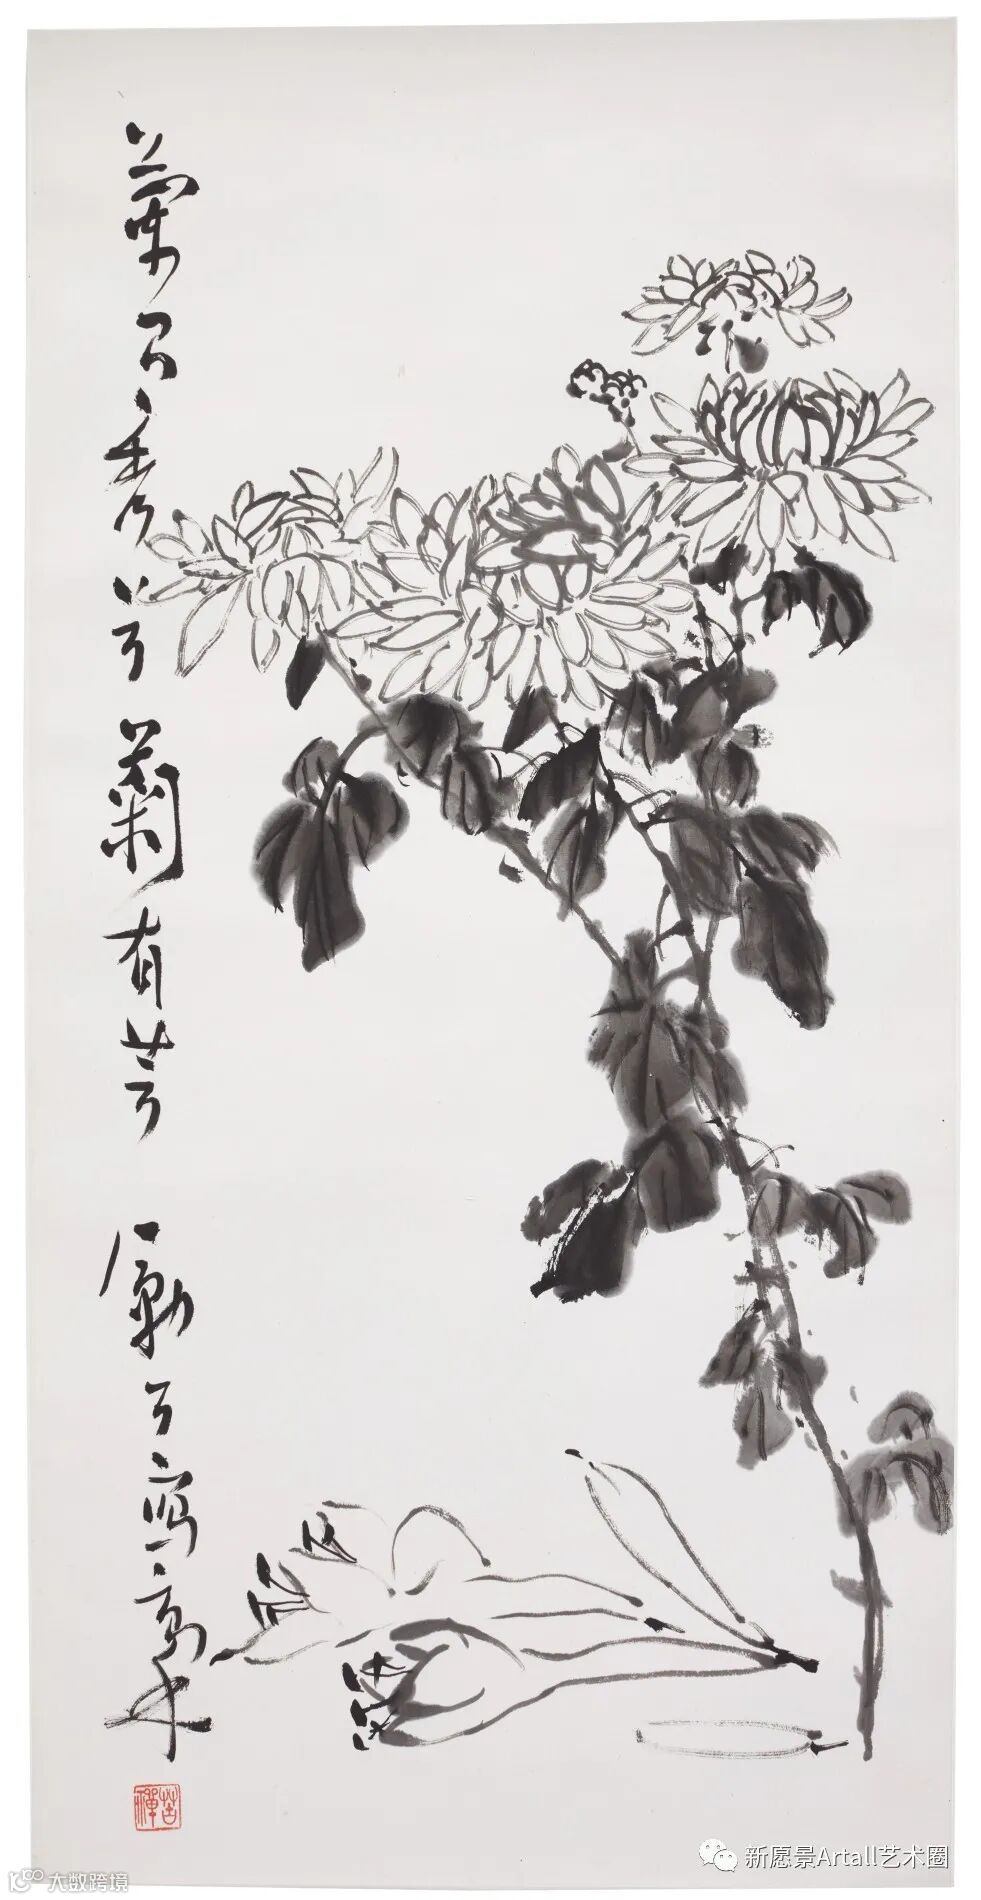 蘭有秀兮菊有芳 勵公寫
苦禪
新愿景Artall艺术圈
大数跨境